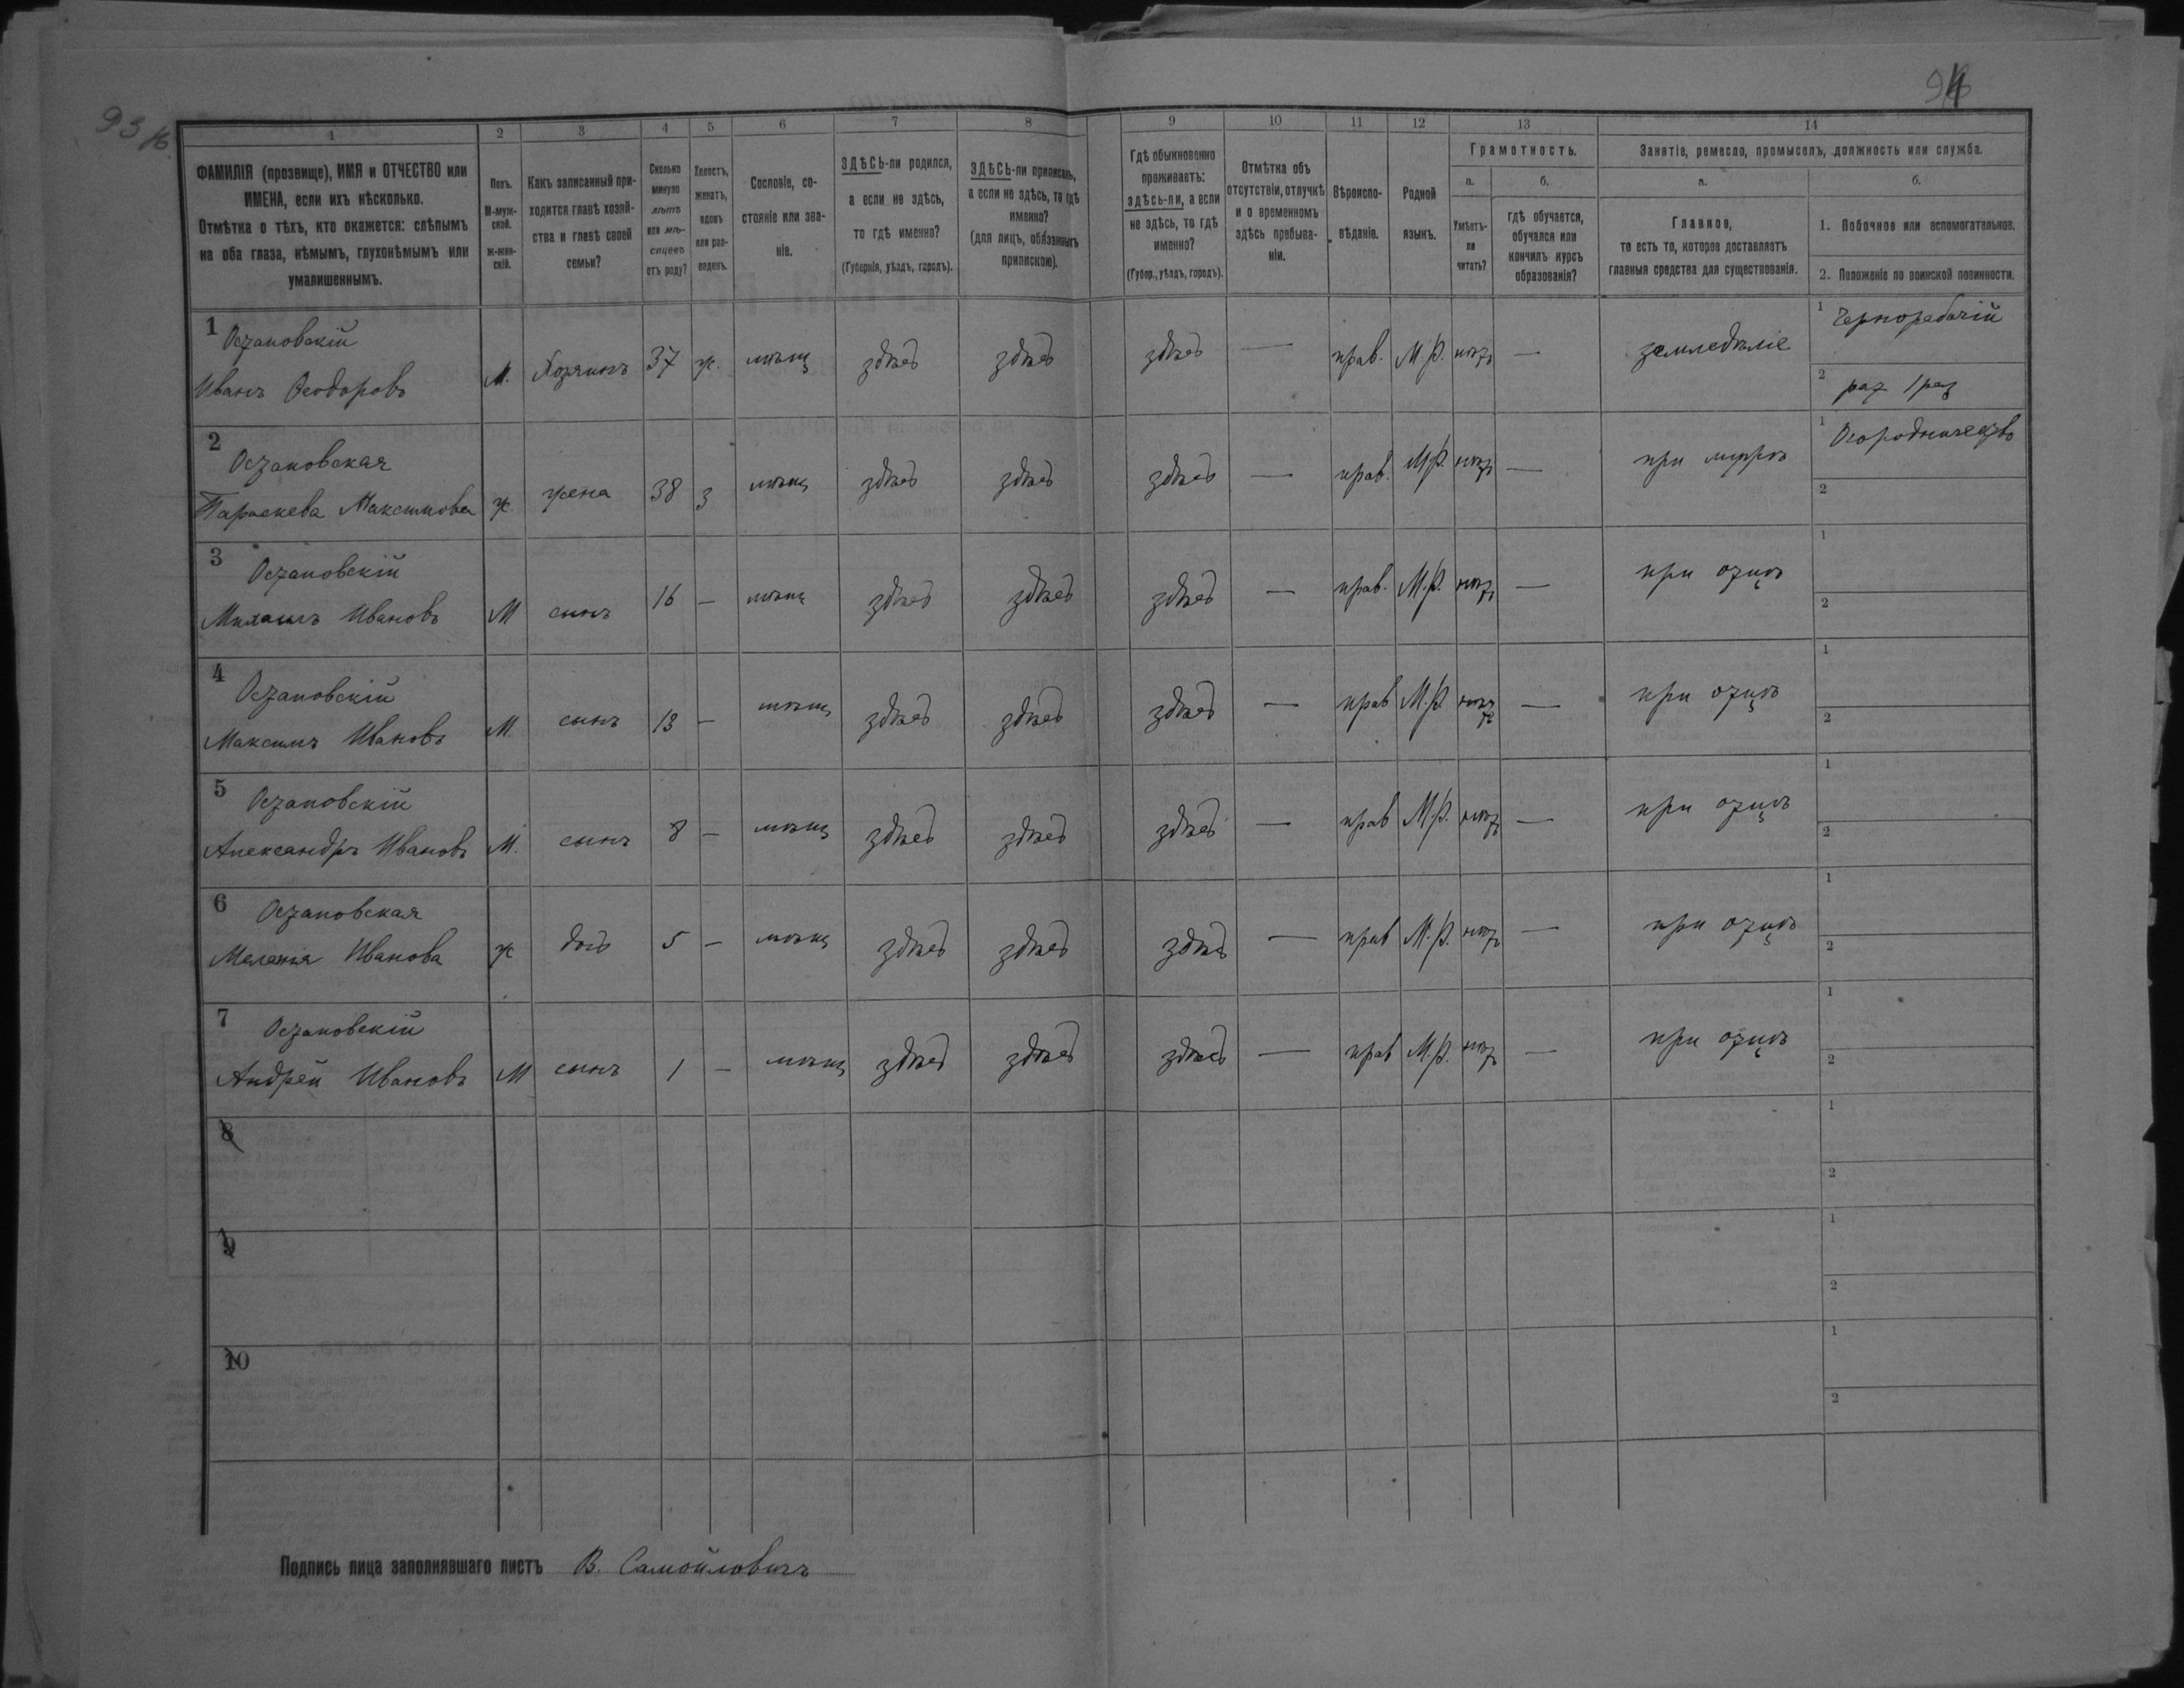 93 об.
94
1 2 3 4 5 6 7 8 9 10 11 12 13 14
ФАМИЛІЯ (прозвище), ИМЯ и ОТЧЕСТВО или
ИМЕНА, если ихъ нѣсколько.
Отмѣтка о тѣхъ, кто окажется: слѣпымъ
на оба глаза, нѣмымъ, глухонѣмымъ или
умалишеннымъ.
Полъ.
М-муж-
ской.
ж-жен-
скій.
Какъ записанный при-
ходится главѣ хозяй-
ства и главѣ своей
семьи?
Сколько
минуло
лѣтъ
или мѣ-
сяцевъ
отъ роду?
Холостъ,
женатъ,
вдовъ
или раз-
веденъ.
Сословіе, со-
стояніе или зва-
ніе.
ЗДѢСЬ-ли родился,
а если не здѣсь,
то гдѣ именно?
(Губернія, уѣздъ, городъ).
ЗДѢСЬ-ли приписанъ,
а если не здѣсь, то гдѣ
именно?
(для лицъ, обязанныхъ
припискою).
Гдѣ обыкновенно
проживаетъ:
здѣсь-ли, а если
не здѣсь, то гдѣ
именно?
(Губер., уѣздъ, городъ).
Отмѣтка объ
отсутствіи, отлучкѣ
и о временномъ
здѣсь пребыва-
ніи.
Вѣроиспо-
вѣданіе.
Родной
языкъ.
Грамотность.
а.
Умѣетъ-
ли
читать?
б.
гдѣ обучается,
обучался или
кончилъ курсъ
образованія?
Занятіе, ремесло, промыселъ, должность или служба.
а.
Главное,
то есть то, которое доставляетъ
главныя средства для существованія.
б.
1. Побочное или вспомогательное.
2. Положеніе по воинской повинности.
1 Остановскій
Иванъ Ѳеодоровъ М. Хозяинъ 37 ж. мѣщ здѣсь здѣсь здѣсь — прав. М.р. нѣтъ — земледѣліе
1 Чернорабочій
2 рат 1 раз
2 Остановская
Параскева Максимова ж жена 38 з мѣщ здѣсь здѣсь здѣсь — прав. М.р. нѣтъ — при мужѣ
1 Огородничество
2
3 Остановскій
Михаилъ Ивановъ М сынъ 16 — мѣщ здѣсь здѣсь здѣсь — прав. М.р. нѣтъ — при отцѣ
1
2
4 Остановскій
Максимъ Ивановъ М. сынъ 13 — мѣщ здѣсь здѣсь здѣсь — прав М.р. нѣтъ — при отцѣ
1
2
5 Остановскій
Александръ Ивановъ М. сынъ 8 — мѣщ здѣсь здѣсь здѣсь — прав М.р. нѣтъ — при отцѣ
1
2
6 Остановская
Меланія Иванова ж дочь 5 — мѣщ здѣсь здѣсь здѣсь — прав М.р. нѣтъ — при отцѣ
1
2
7 Остановскій
Андрей Ивановъ М сынъ 1 — мѣщ здѣсь здѣсь здѣсь — прав М.р. нѣтъ — при отцѣ
1
2
8
1
2
9
1
2
10
1
2
Подпись лица заполнявшаго листъ В. Самойловичъ